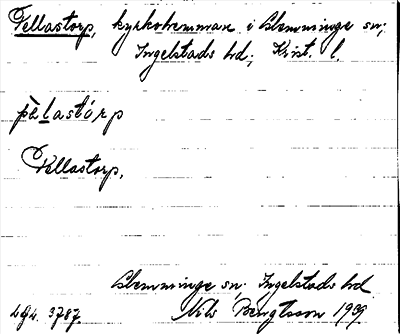 Pellastorp, kyrkohemman i Glemminge sn;
Ingelstads hd; Krist. l.
pèlastórp
Pellastorp.
Glemminge sn. Ingelstads hd
Lyd. 3787. Nils Bengtsson 1939